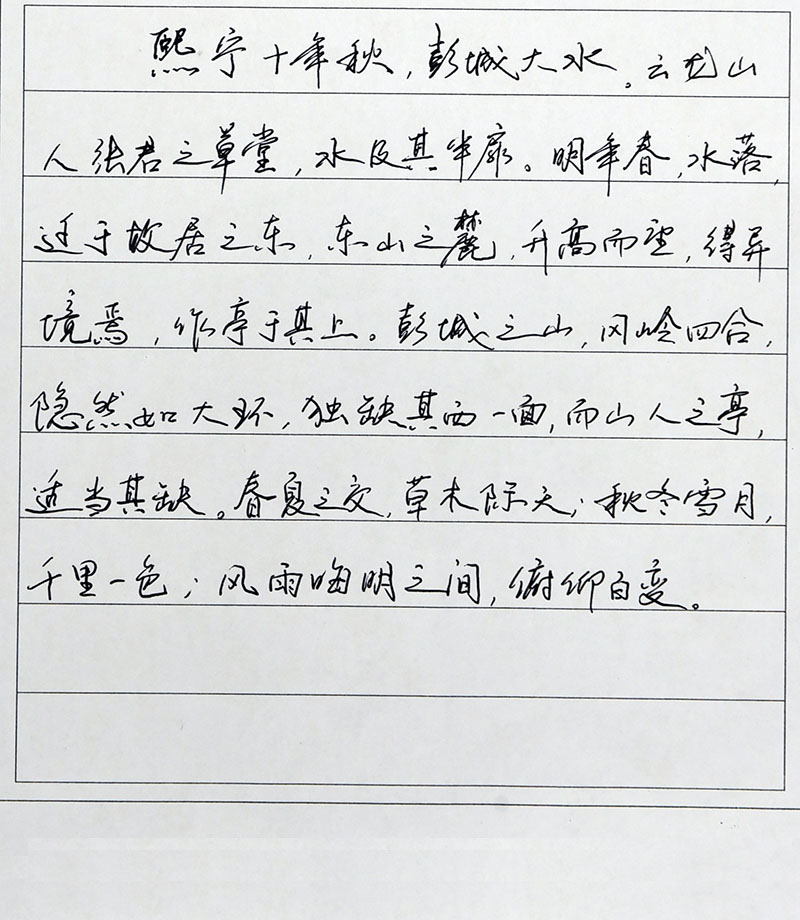 熙宁十年秋，彭城大水。云龙山
人张君之草堂，水及其半扉。明年春，水落，
迁于故居之东，东山之麓，升高而望，得异
境焉，作亭于其上。彭城之山，冈岭四合，
隐然如大环，独缺其西一面，而山人之亭，
适当其缺。春夏之交，草木际天；秋冬雪月，
千里一色；风雨晦明之间，俯仰百变。